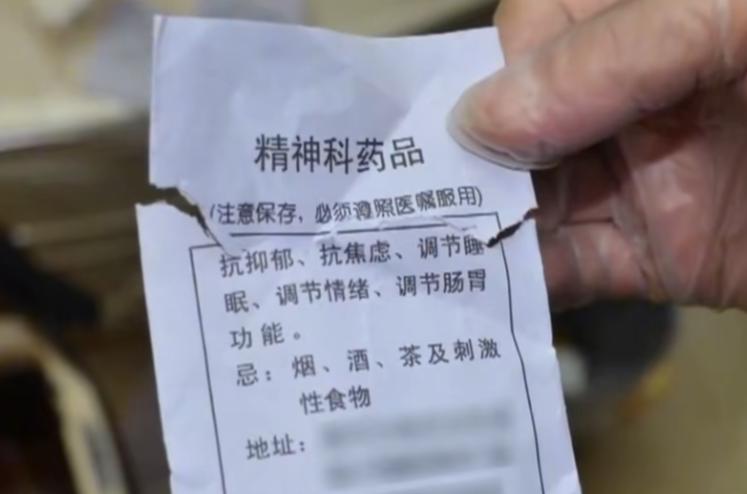 精神科药品
(注意保存，必须遵照医嘱服用)
抗抑郁、抗焦虑、调节睡
眠、调节情绪、调节肠胃
功能。
忌：烟、酒、茶及刺激
性食物
地址：